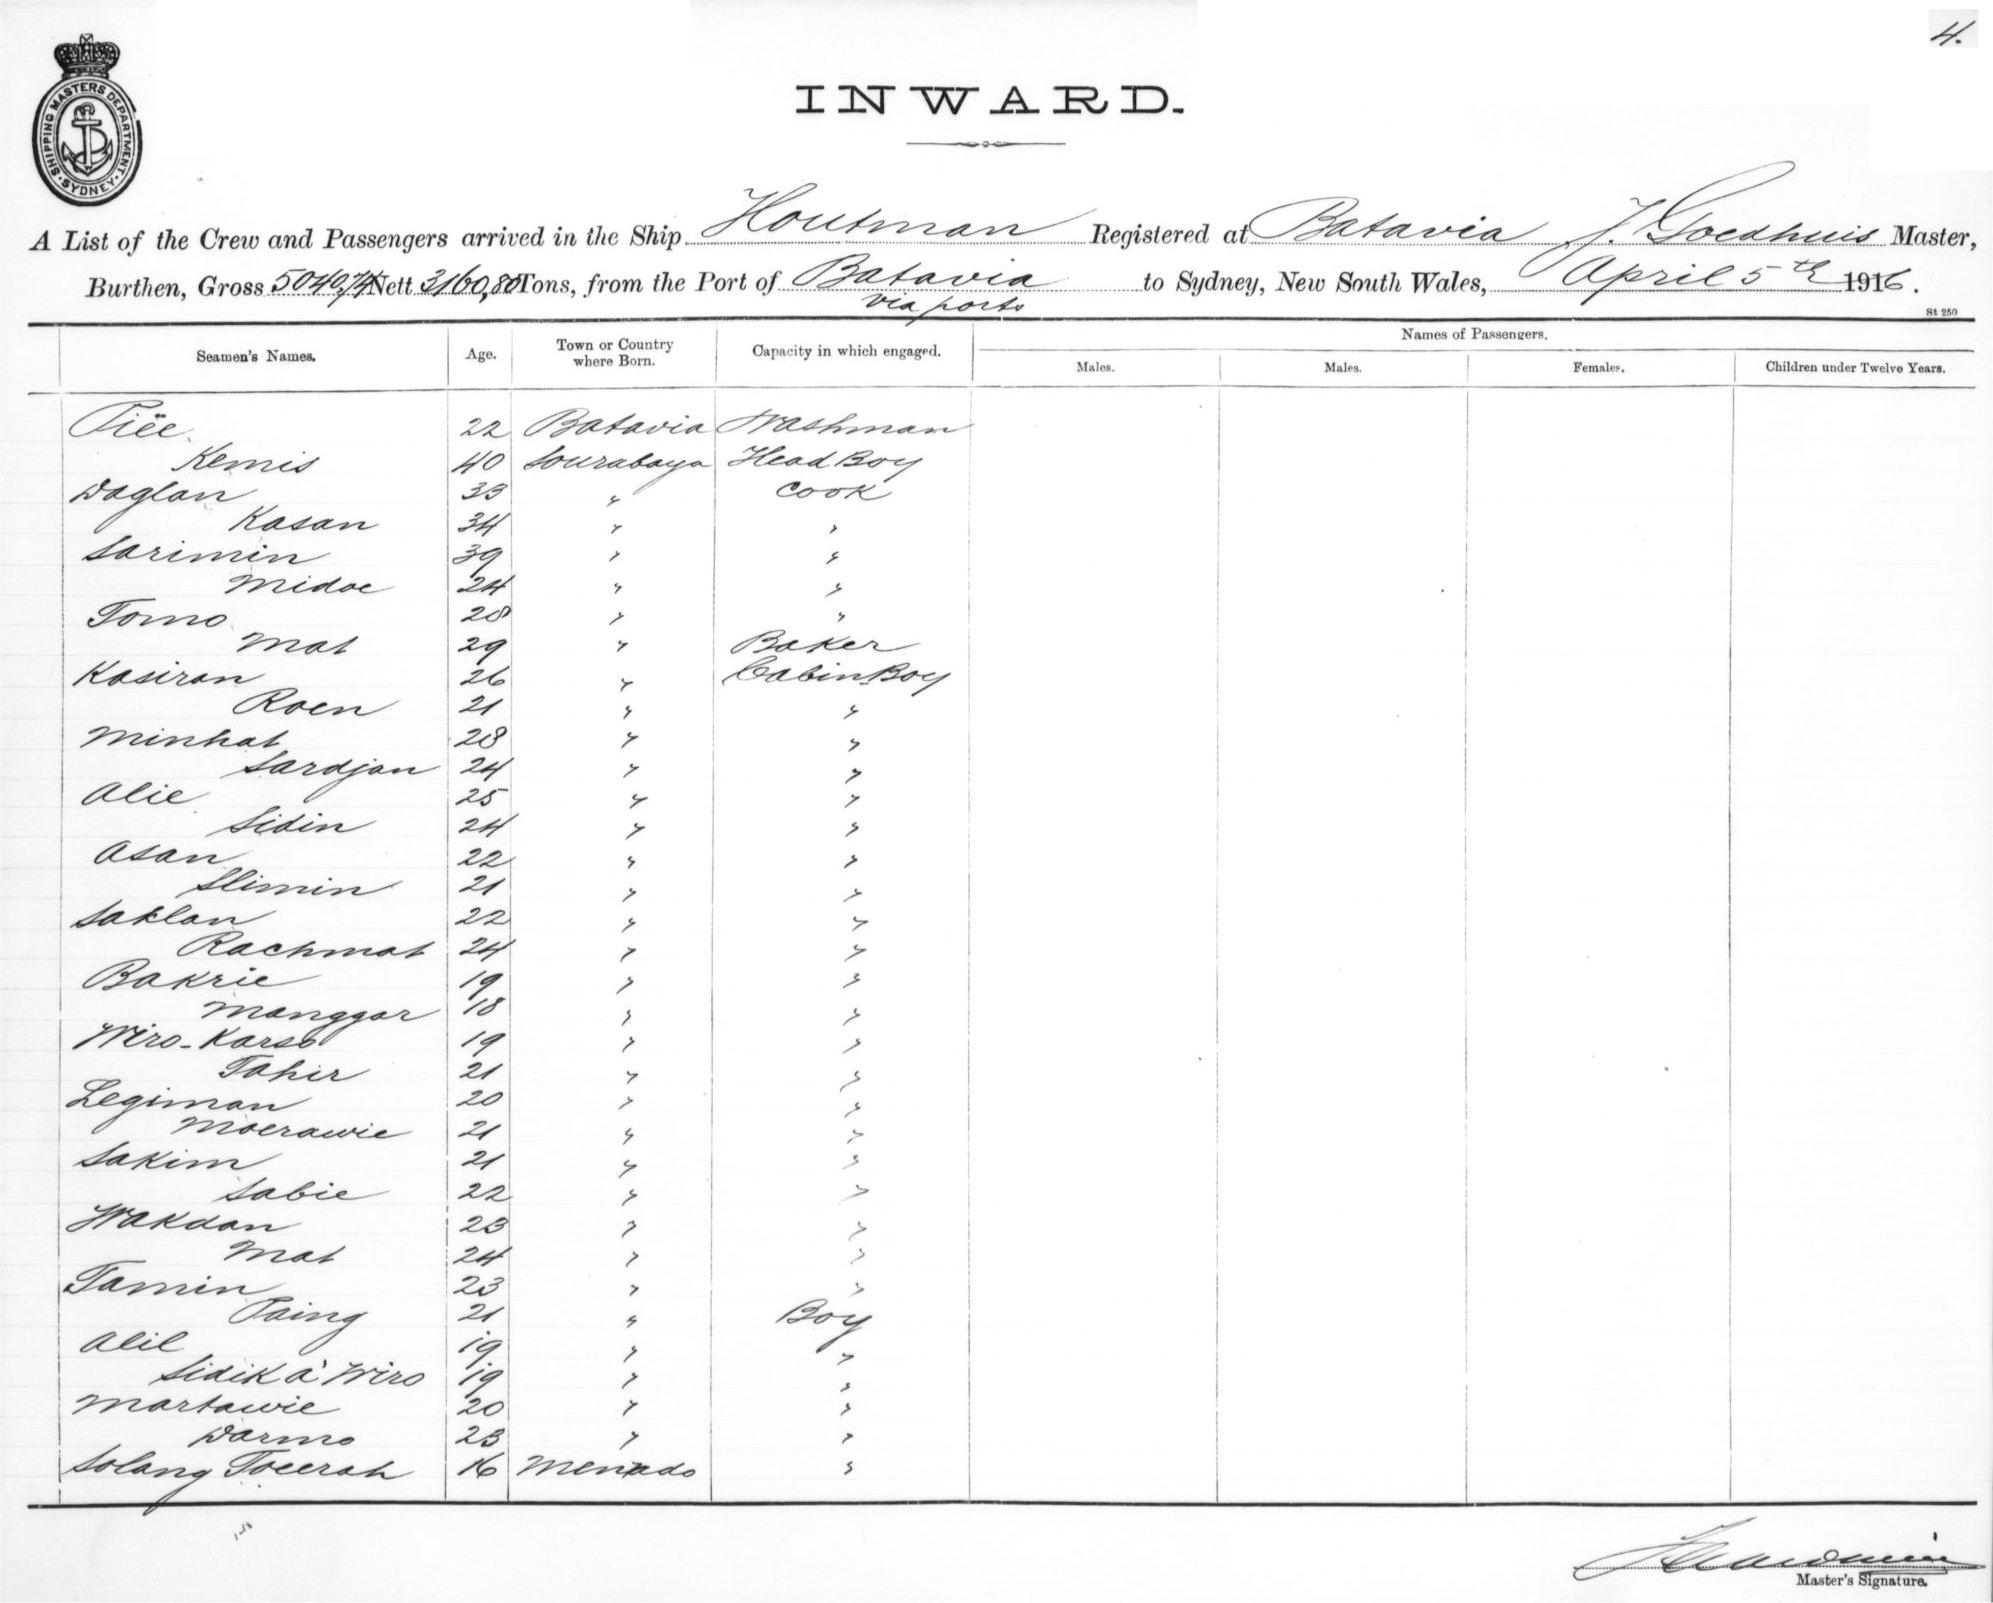 4.
SHIPPING MASTERS DEPARTMENT
SYDNEY
INWARD.
A List of the Crew and Passengers arrived in the Ship Houtman Registered at Batavia J. Goedhuis Master,
Burthen, Gross 5040,74 Nett 3160,80 Tons, from the Port of Batavia to Sydney, New South Wales, April 5th 1916.
via ports
St 250
Seamen's Names. Age. Town or Country where Born. Capacity in which engaged. Names of Passengers.
Males. Males. Females. Children under Twelve Years.
Piëe. 22 Batavia Washman
Kemis 40 Sourabaya Head Boy
Daglan 33 " Cook
Kasan 34 " "
Sarimin 39 " "
Midoe 24 " "
Tomo 28 " "
Mat 29 " Baker
Kasiran 26 " Cabin Boy
Roen 21 " "
Minhat 28 " "
Sardjan 24 " "
Alie 25 " "
Sidin 24 " "
Asan 22 " "
Slimin 21 " "
Saklan 22 " "
Rachmat 24 " "
Bakrie 19 " "
Manggar 18 " "
Wiro-Karso 19 " "
Tahir 21 " "
Legiman 20 " "
Moerawie 21 " "
Sakim 21 " "
Sabie 22 " "
Wakdan 23 " "
Mat 24 " "
Tamin 23 " "
Paing 21 " Boy
Alil 19 " "
Sidik à Wiro 19 " "
Martawie 20 " "
Darmo 23 " "
Solang Toeerah 16 Menado "
Master's Signature.